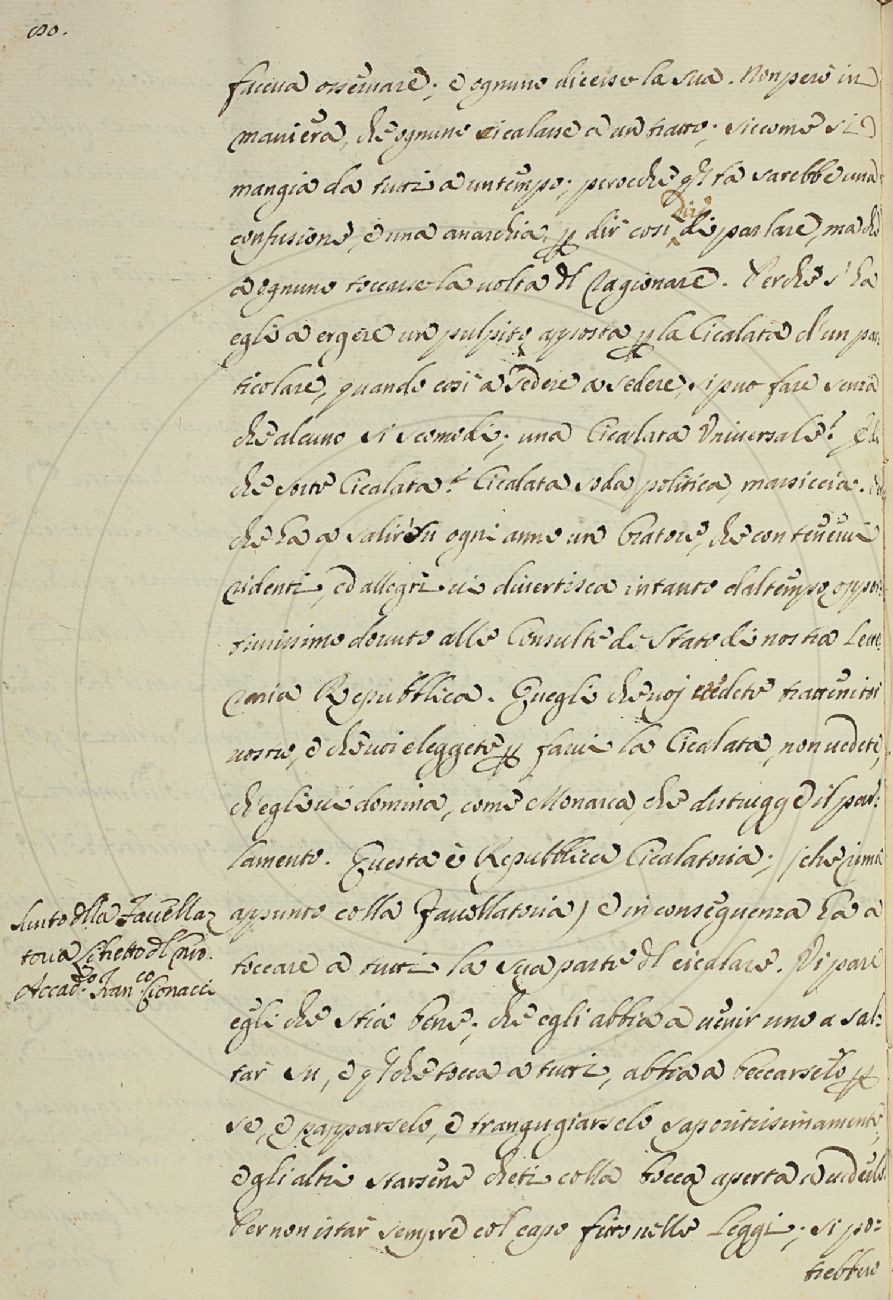 80.
faceva osservare; e ognuno dicesse la sua. Non però in
maniera, che ognuno cicalasse a un tratto; siccome si
mangia da tutti a un tempo; perocchè q.ta sarebbe una
confusione, e una anarchia, p dir così di parlare, ma che
a ognuno toccasse la volta dl ragionare. Perchè s'ha
egli a ergere un pulpito apposta p la Cicalata d'un par
ticolare, quando così a sedere a sedere, si può fare senza
che alcuno si scomodi; una Cicalata Universale?
che sorte Cicalata? Cicalata soda politica, massiccia.
che ha a salir su ogni anno un Oratore, che con tenervi
ridenti, ed allegri vi divertisca intanto dal tempo oppor
tunissimo dovuto alle Consulte di Stato di nostra Lette
raria Repubblica. Quegli che voi credete trattenitor
vostro, e che voi eleggete p farvi la Cicalata, non vedete,
ch'egli vi domina, come Monarca, che distrugge il par:
lamento. Questa è Repubblica Cicalatoria; (che rima
appunto colla Favellatoria) e in conseguenza ha a
toccare a tutti la sua parte dl cicalare. Vi pare
egli che stia bene; che egli abbia a venir uno a sal:
tar su, e ql che tocca a tutti, abbia a beccarselo p
se, e papparselo, e trangugiarselo saporitissimamente,
e gli altri starsene cheti colla bocca aperta a vederlo.
Per non istar sempre col capo fitto nelle Leggi; si po:
trebbero
dlla Favella
toria dl nro
Accad.co Fran.co Cionacci